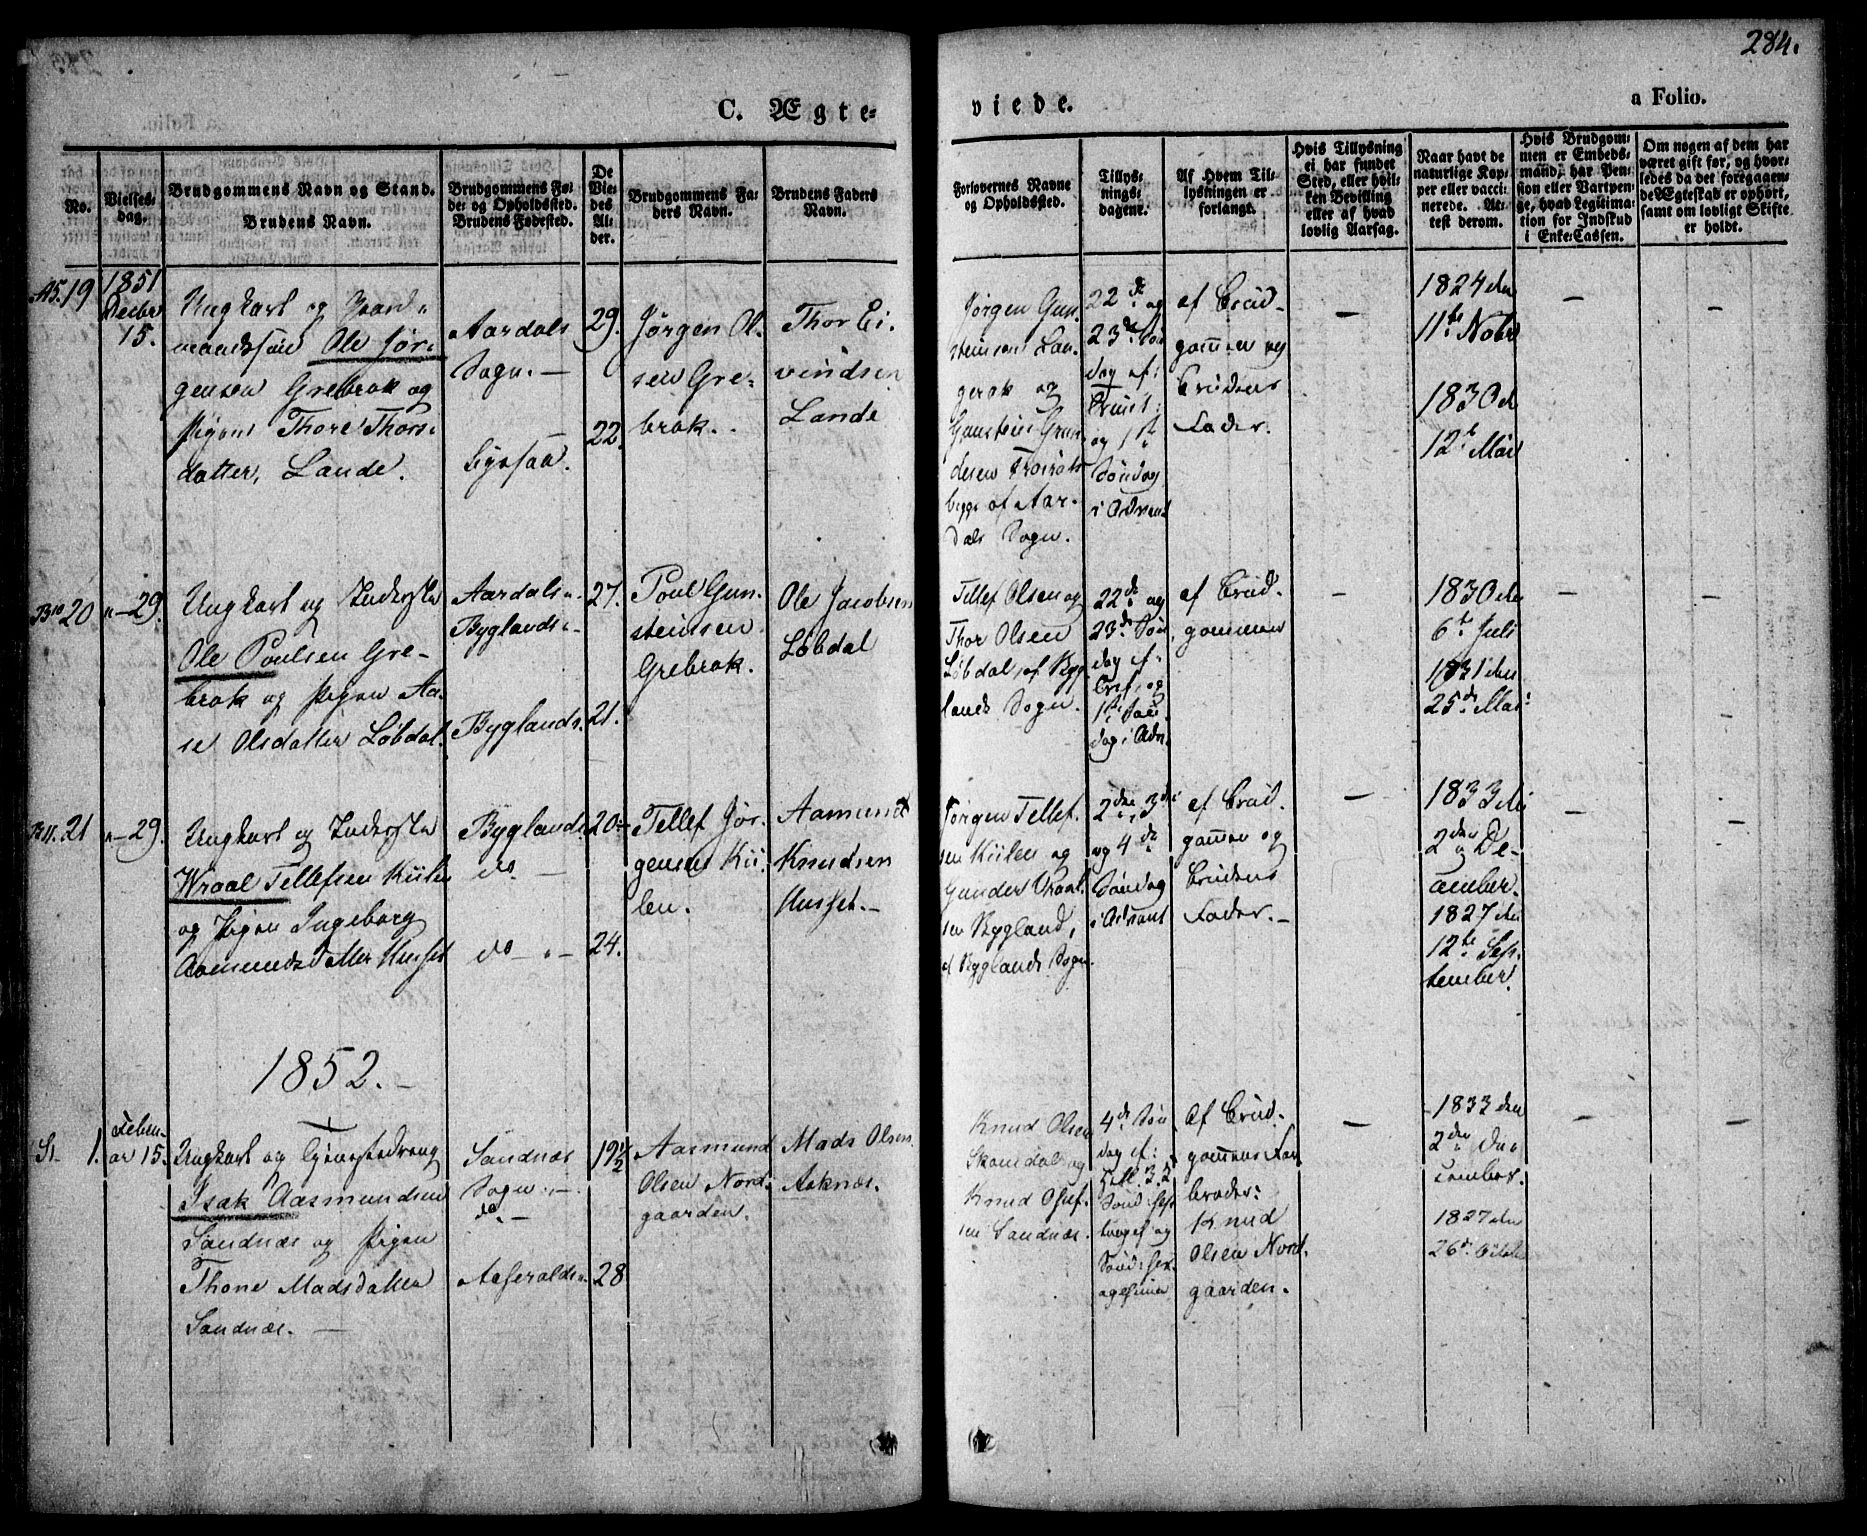 284.
C. Ægte-
viede.
a Folio.
No.
Vielses-
dag.
Brudgommens Navn og Stand.
Brudens Navn.
Brudgommens Fø-
de- og Opholdssted.
Brudens Fødested.
De
Vie-
des
Al-
der.
Brudgommens Fa-
ders Navn.
Brudens Faders
Navn.
Forlovernes Navne
og Opholdssted.
Tillys-
nings-
dagene.
Af Hvem Til-
lysningen er
forlangt.
Hvis Tillysning
ei har fundet
Sted, eller hvil-
ken Bevilling
eller af hvad
lovlig Aarsag.
Naar havt de
naturlige Kop-
per eller vacci-
nerede. At-
test derom.
Hvis Brudgom-
men er Embeds-
mand, har Pen-
sion eller Vartpen-
ge, hvad Legitima-
tion for Indskud
i Enke-Cassen.
Om nogen af dem har
været gift før, og hvor-
ledes da det foregaaen-
de Ægteskab er ophørt,
samt om lovligt Skifte
er holdt.
A5. 19
1851
Decbr
15.
Ungkarl og Gaard-
mandssøn Ole Jør-
gensen Grebrok og
Pigen Thore Thors-
datter, Lande.
Aardals
Sogn. —
29.
22.
Jørgen Ol-
sen Gre-
brok.
Thor Ei-
vindsen
Lande
Jørgen Gun-
steinsen Lan-
gerak og
begge af Aar-
dals Sogn.
22de og
23de Søn
dag ef:
og 1ste
Søndag
i Advent
af Brud-
gommen og
Brudens
Fader.
—
1824 den
11te Novbr
1830 d
12te Mai
—
B10 20
"—29.
Ungkarl og Inderste
Ole Poulsen Gre-
brok og Pigen Aa-
se Olsdatter Løbdal.
Aardals
Byglands
Byglands.
27.
21.
Poul Gun-
steinsen
Grebrok.
Ole Jacobsen
Løbdal
Tellef Olsen og
Thor Olsen
Løbdal, af Byg-
lands Sogn.
22de og
23de Søn
dag ef.
Tref. og
1ste Søn-
dag i Adv.
af Brud-
gommen
—
1830 den
6te Juli
1831 den
25de Mai
—
—
B11. 21
"—29.
Ungkarl og Inderste
Wraal Tellefsen Kiilen
og Pigen Ingeborg
Aamundsdatter Huset
Byglands
do —
do — " —
20
24.
Tellef Jør-
gensen Kii-
len.
Aamund
Knudsen
Huset. —
Jørgen Tellef-
sen Kiilen og
Gunder Vraal-
sen Bygland,
af Byglands Sogn.
2den, 3die
og 4de
Søndag
i Advent
af Brud-
gommen og
Brudens
Fader. —
—
1833 d
2den De-
cember.
1827 den
12te Sep-
tember.
—
—
1852. —
1.
Febru-
ar 15.
Ungkarl og Tjenestedreng
Isak Aasmundsen
Sandnæs og Pigen
Thone Madsdatter
Sandnæs. —
Sandnæs
Sogn. —
do. —
Aaseralds.
19½
28
Aasmund
Olsen Nord-
gaarden.
Mads Olsen
Asknæs.
Knud Olsen
Skomedal og
Knud Olsen
Sandnæs.
4de Søn
dag ef:
og
Søndag
Af Brud-
gommens Far-
broder:
Knud
Olsen Nord-
gaarden.
—
1833 den
2den De-
cember.
1827 den
26de Octbr
—
—